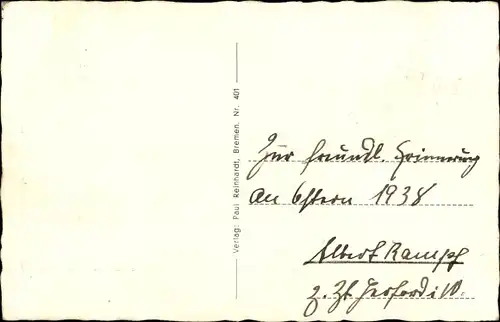 Verlag: Paul Reinhardt, Bremen. Nr. 401
Zur freundl. Erinnerung
an Ostern 1938
Albert Rampf
z. Zt. Herford i. W.